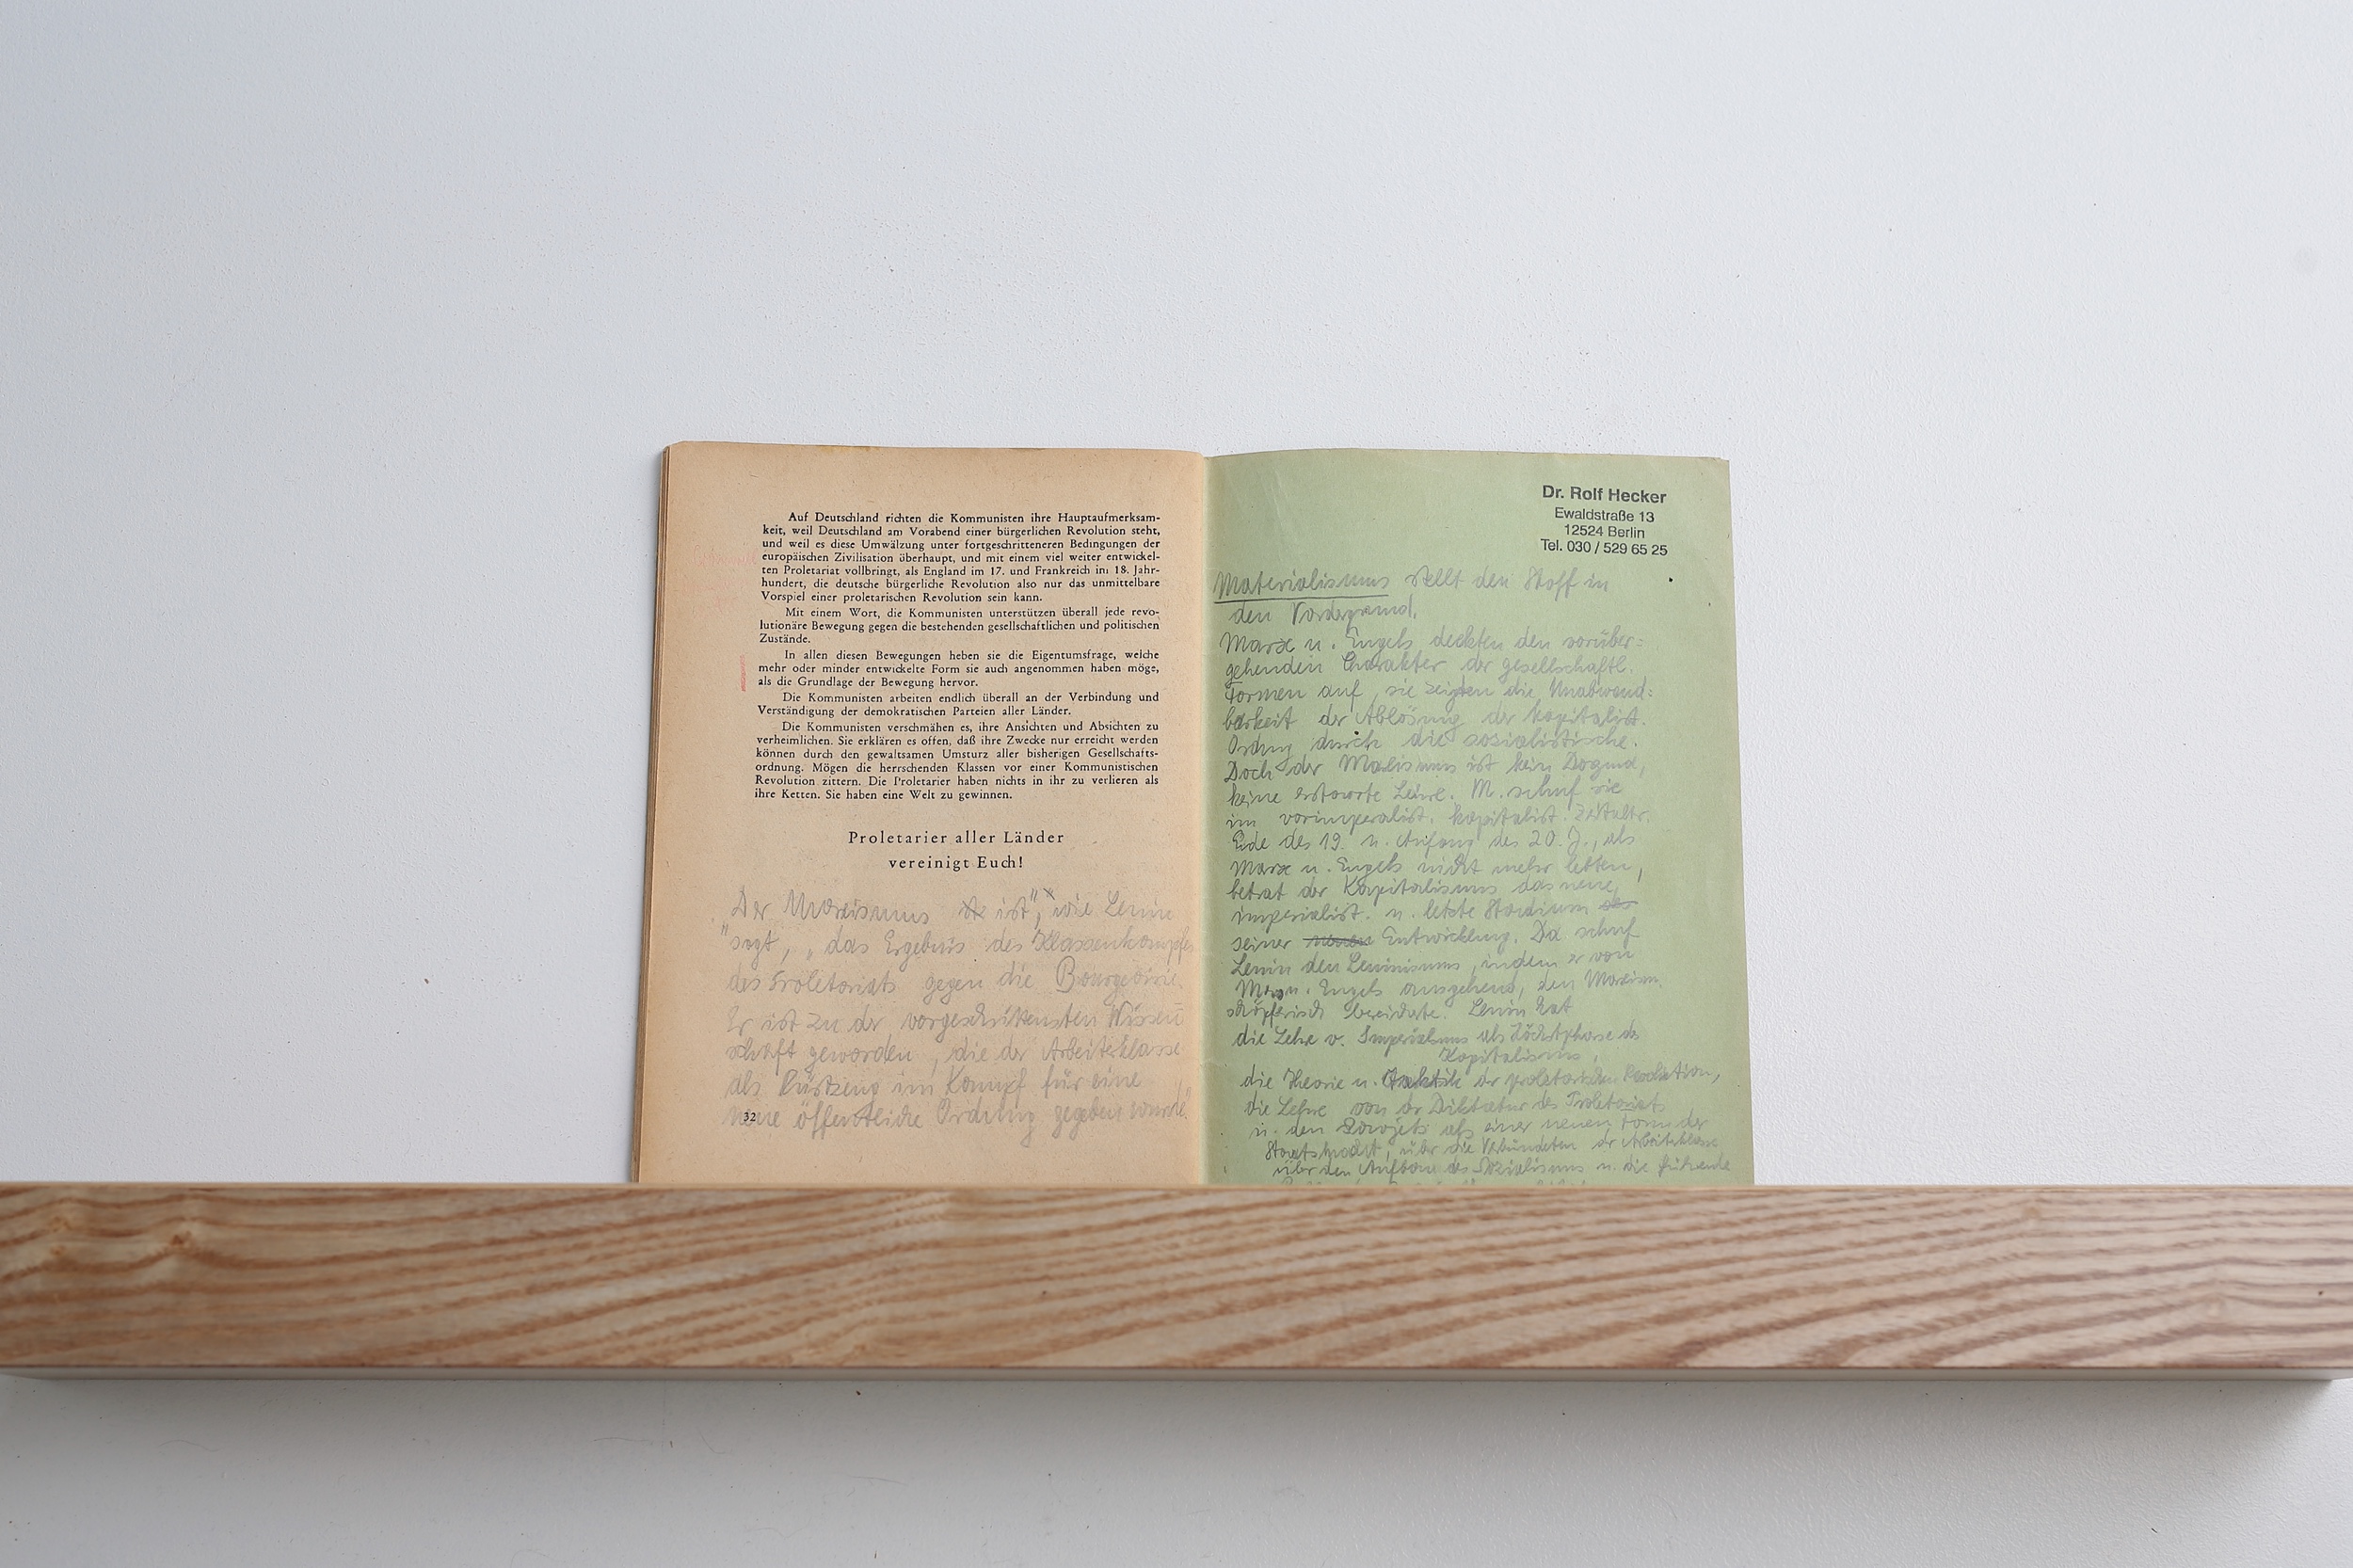 Auf Deutschland richten die Kommunisten ihre Hauptaufmerksam-
keit, weil Deutschland am Vorabend einer bürgerlichen Revolution steht,
und weil es diese Umwälzung unter fortgeschritteneren Bedingungen der
europäischen Zivilisation überhaupt, und mit einem viel weiter entwickel-
ten Proletariat vollbringt, als England im 17. und Frankreich im 18. Jahr-
hundert, die deutsche bürgerliche Revolution also nur das unmittelbare
Vorspiel einer proletarischen Revolution sein kann.
Mit einem Wort, die Kommunisten unterstützen überall jede revo-
lutionäre Bewegung gegen die bestehenden gesellschaftlichen und politischen
Zustände.
In allen diesen Bewegungen heben sie die Eigentumsfrage, welche
mehr oder minder entwickelte Form sie auch angenommen haben möge,
als die Grundlage der Bewegung hervor.
Die Kommunisten arbeiten endlich überall an der Verbindung und
Verständigung der demokratischen Parteien aller Länder.
Die Kommunisten verschmähen es, ihre Ansichten und Absichten zu
verheimlichen. Sie erklären es offen, daß ihre Zwecke nur erreicht werden
können durch den gewaltsamen Umsturz aller bisherigen Gesellschafts-
ordnung. Mögen die herrschenden Klassen vor einer Kommunistischen
Revolution zittern. Die Proletarier haben nichts in ihr zu verlieren als
ihre Ketten. Sie haben eine Welt zu gewinnen.
Proletarier aller Länder
vereinigt Euch!
Der Marxismus ist", wie Lenin
"sagt, „das Ergebnis des Klassenkampfes
des Proletariats gegen die Bourgeoisie.
Er ist zu der vorgeschrittensten Wissen
schaft geworden, die der Arbeiterklasse
als Rüstzeug im Kampf für eine
neue öffentliche Ordnung gegeben wurde"
32
Dr. Rolf Hecker
Ewaldstraße 13
12524 Berlin
Tel. 030 / 529 65 25
Materialismus stellt den Stoff in
den Vordergrund.
Marx u. Engels deckten den vorüber=
gehenden Charakter der gesellschaftl.
Formen auf, sie zeigten die Unabwend=
barkeit der Ablösung der kapitalist.
Ordng durch die sozialistische.
Doch der Maxismus ist kein Dogma,
keine erstarrte Lehre. M. schuf sie
im vorimperalist. kapitalist. Zeitaltr.
Ende des 19. u. Anfang des 20. J., als
Marx u. Engels nicht mehr lebten,
betrat der Kapitalismus das neue,
imperialist. u. letzte Stadium
seiner Entwicklung. Da schuf
Lenin den Leninismus, indem er von
Marx u. Engels ausgehend, den Marxism.
schöpferisch bereicherte. Lenin hat
die Lehre v. Imperialismus als Höchstphase des
Kapitalismus,
die Theorie u. Taktik der proletarischen Revolution,
die Lehre von der Diktatur des Proletariats
u. den Sowjets als einer neuen Form der
Staatsmacht, über die Verbündeten der Arbeiterklasse
über den Aufbau des Sozialismus u. die führende